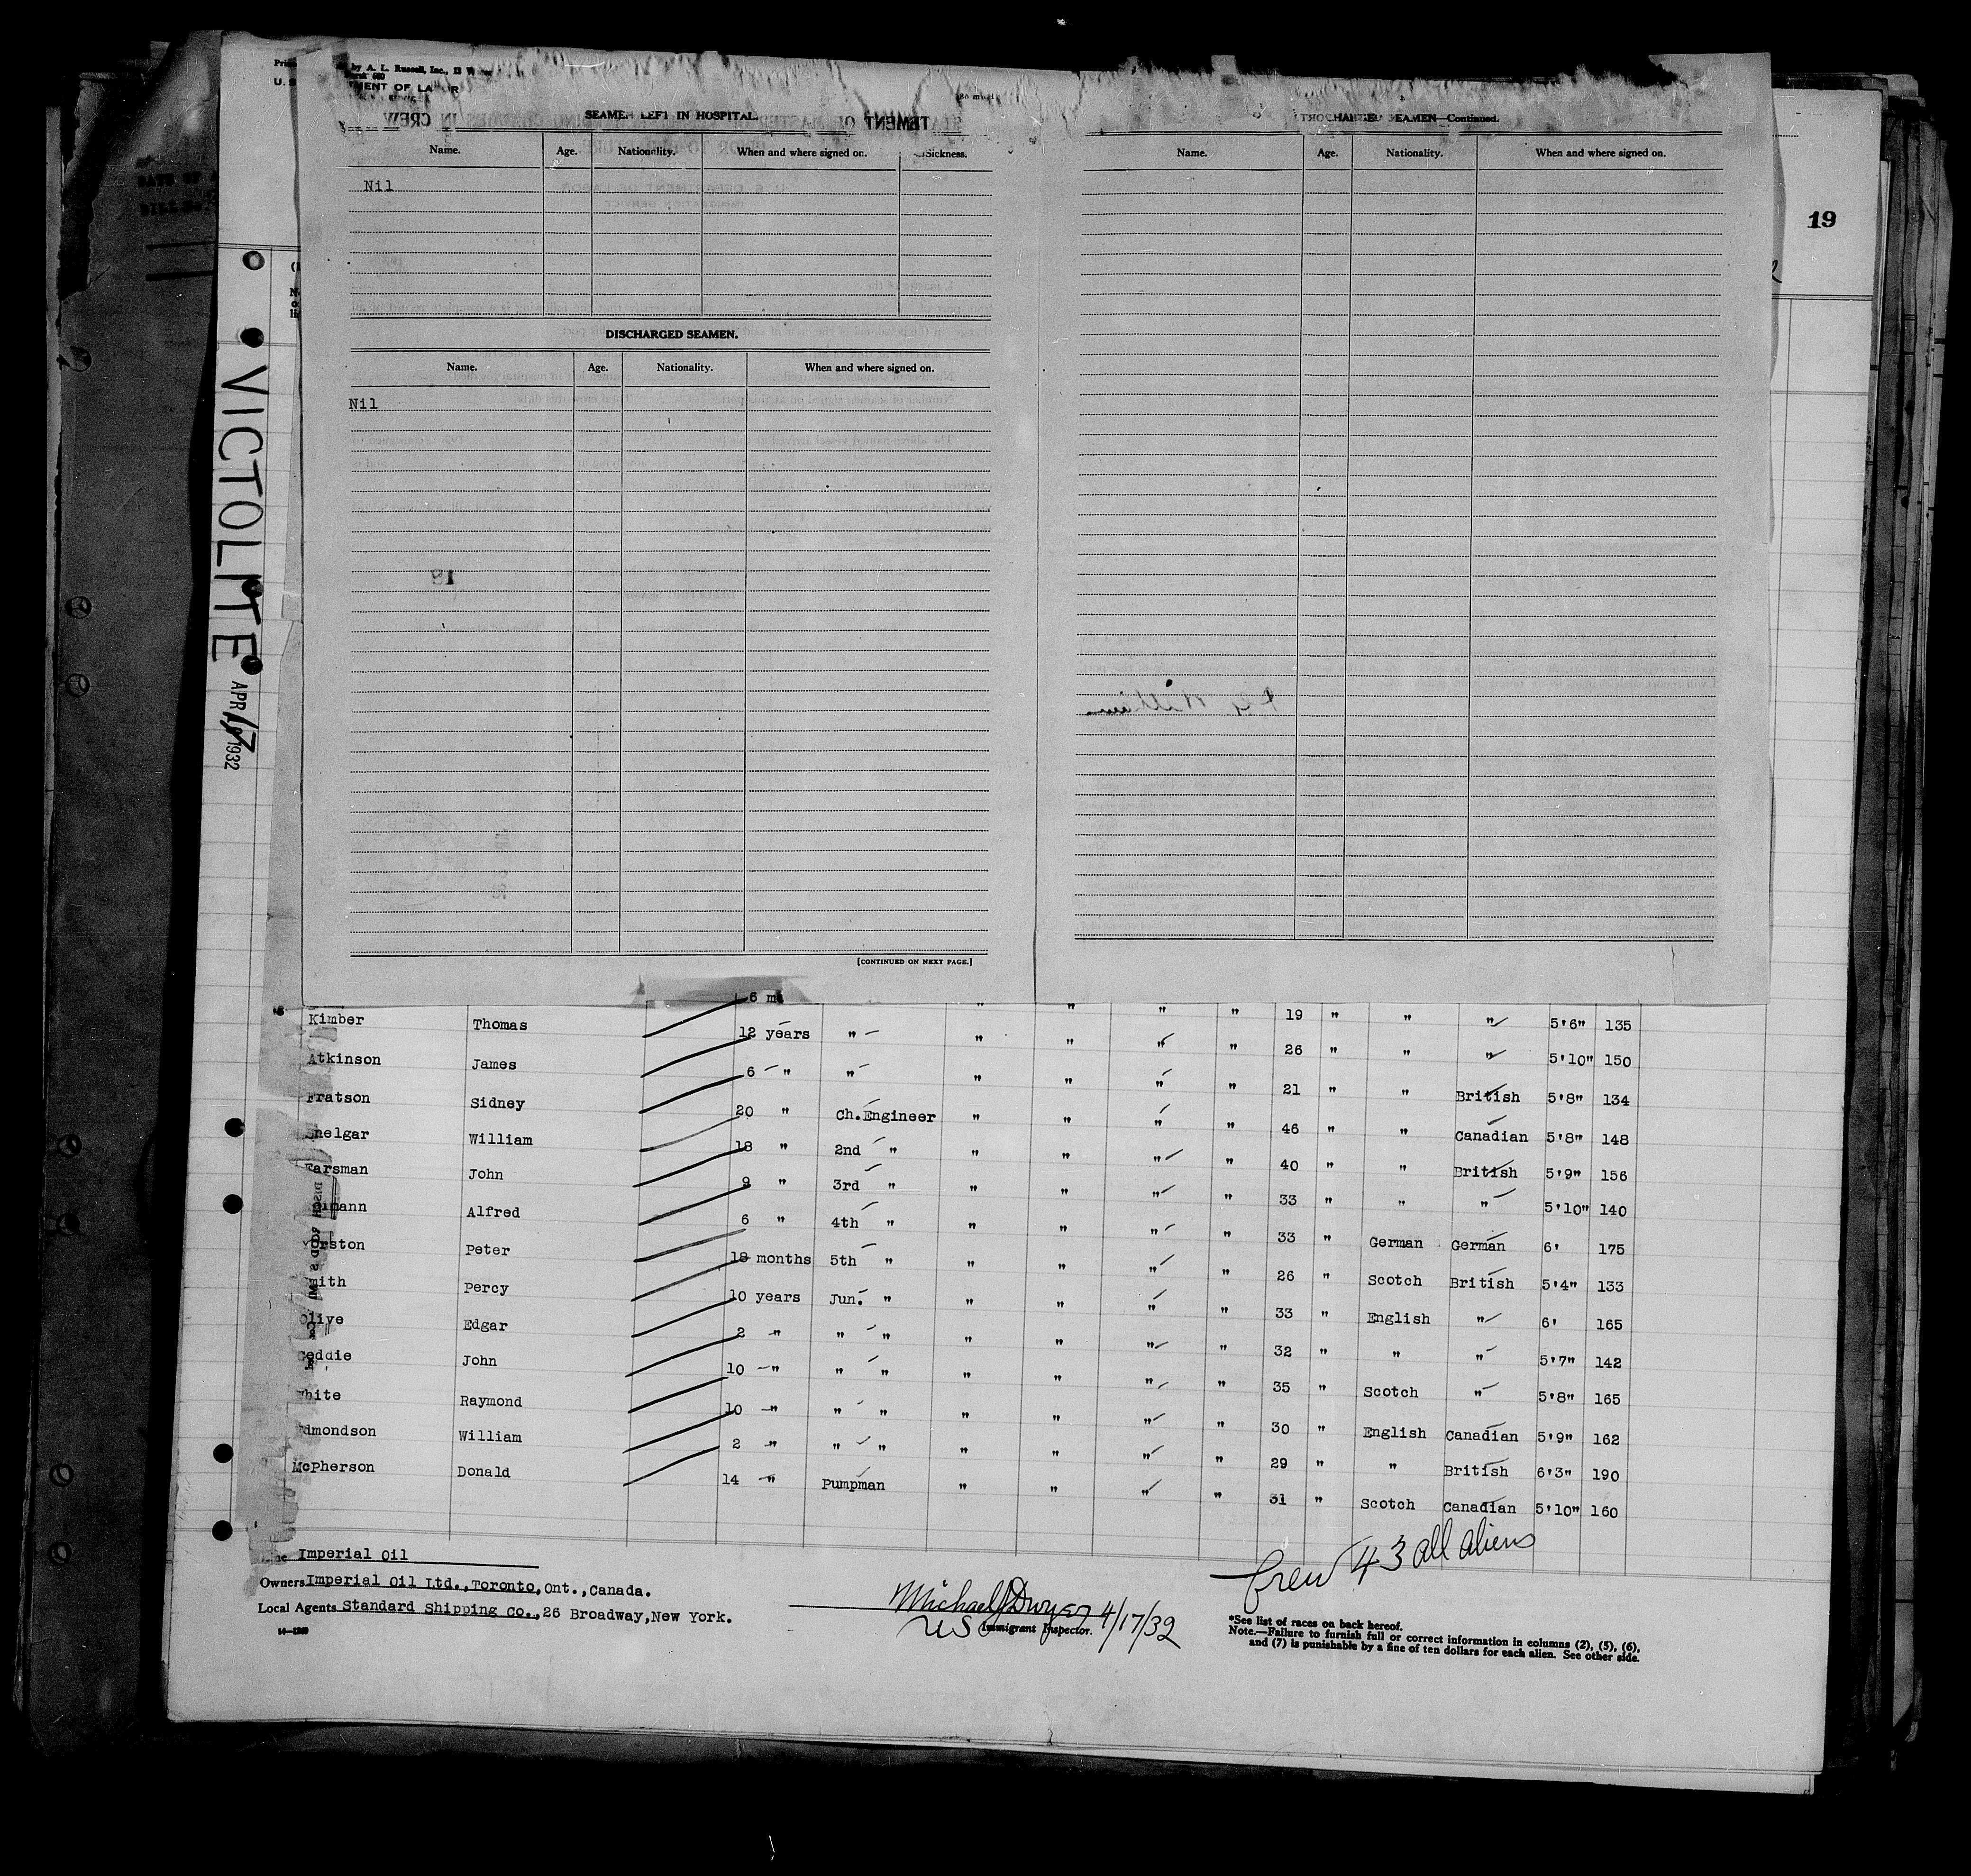 by A. L. Russell, Inc., 13
U. S.
19
SEAMEN LEFT IN HOSPITAL.
Name. Age. Nationality. When and where signed on. Sickness.
Nil
DISCHARGED SEAMEN.
Name. Age. Nationality. When and where signed on.
Nil
[CONTINUED ON NEXT PAGE.]
SEAMEN—Continued.
Name. Age. Nationality. When and where signed on.
VICTOLITE
APR 17 1932
6
Kimber Thomas 12 years " " " " " " 19 " " " 5'6" 135
Atkinson James 6 " " " " " " 26 " " " 5'10" 150
Sidney 20 " Ch.Engineer " " " " 21 " " British 5'8" 134
William 18 " 2nd " " " " " 46 " " Canadian 5'8" 148
John 9 " 3rd " " " " " 40 " " British 5'9" 156
Alfred 6 " 4th " " " " " 33 " " " 5'10" 140
Peter 18 months 5th " " " " " 33 " German German 6' 175
Percy 10 years Jun. " " " " " 26 " Scotch British 5'4" 133
Edgar 2 " " " " " " " 33 " English " 6' 165
John 10 " " " " " " " 32 " " " 5'7" 142
Raymond 10 " " " " " " " 35 " Scotch " 5'8" 165
William 2 " " " " " " " 30 " English Canadian 5'9" 162
McPherson Donald 14 " Pumpman " " " " 29 " " British 6'3" 190
31 " Scotch Canadian 5'10" 160
Imperial Oil
Owners Imperial Oil Ltd., Toronto, Ont., Canada.
Local Agents Standard Shipping Co., 26 Broadway, New York.
14—1269
Michael J Dwyer 4/17/32
US Immigrant Inspector.
Crew 43 all aliens
*See list of races on back hereof.
Note.—Failure to furnish full or correct information in columns (2), (5), (6),
and (7) is punishable by a fine of ten dollars for each alien. See other side.